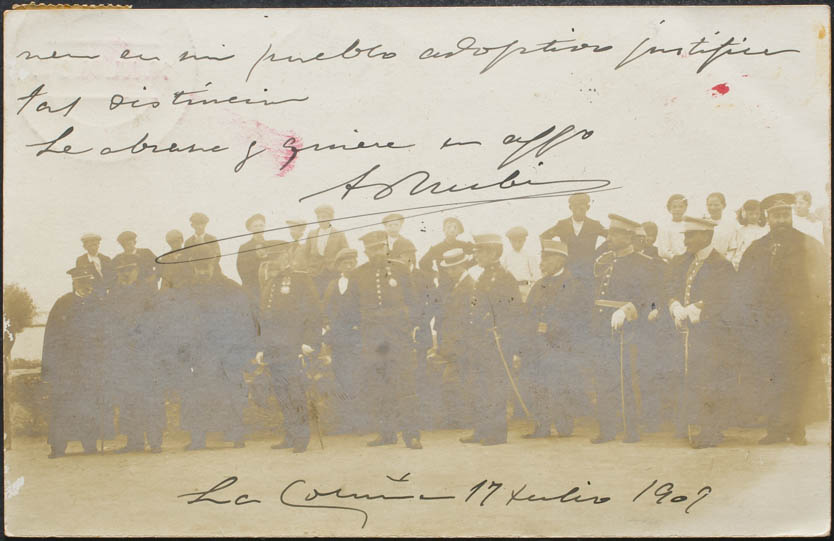 nen en mi pueblo adoptivo justifica
tal distinción
Le abrasa y quiere su affº
A Rubi
La Coruña 17 Julio 1907